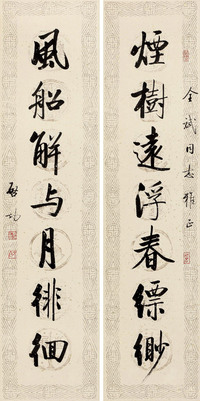 煙樹遠浮春縹緲
全斌同志雅正
風船解与月徘徊
啟功